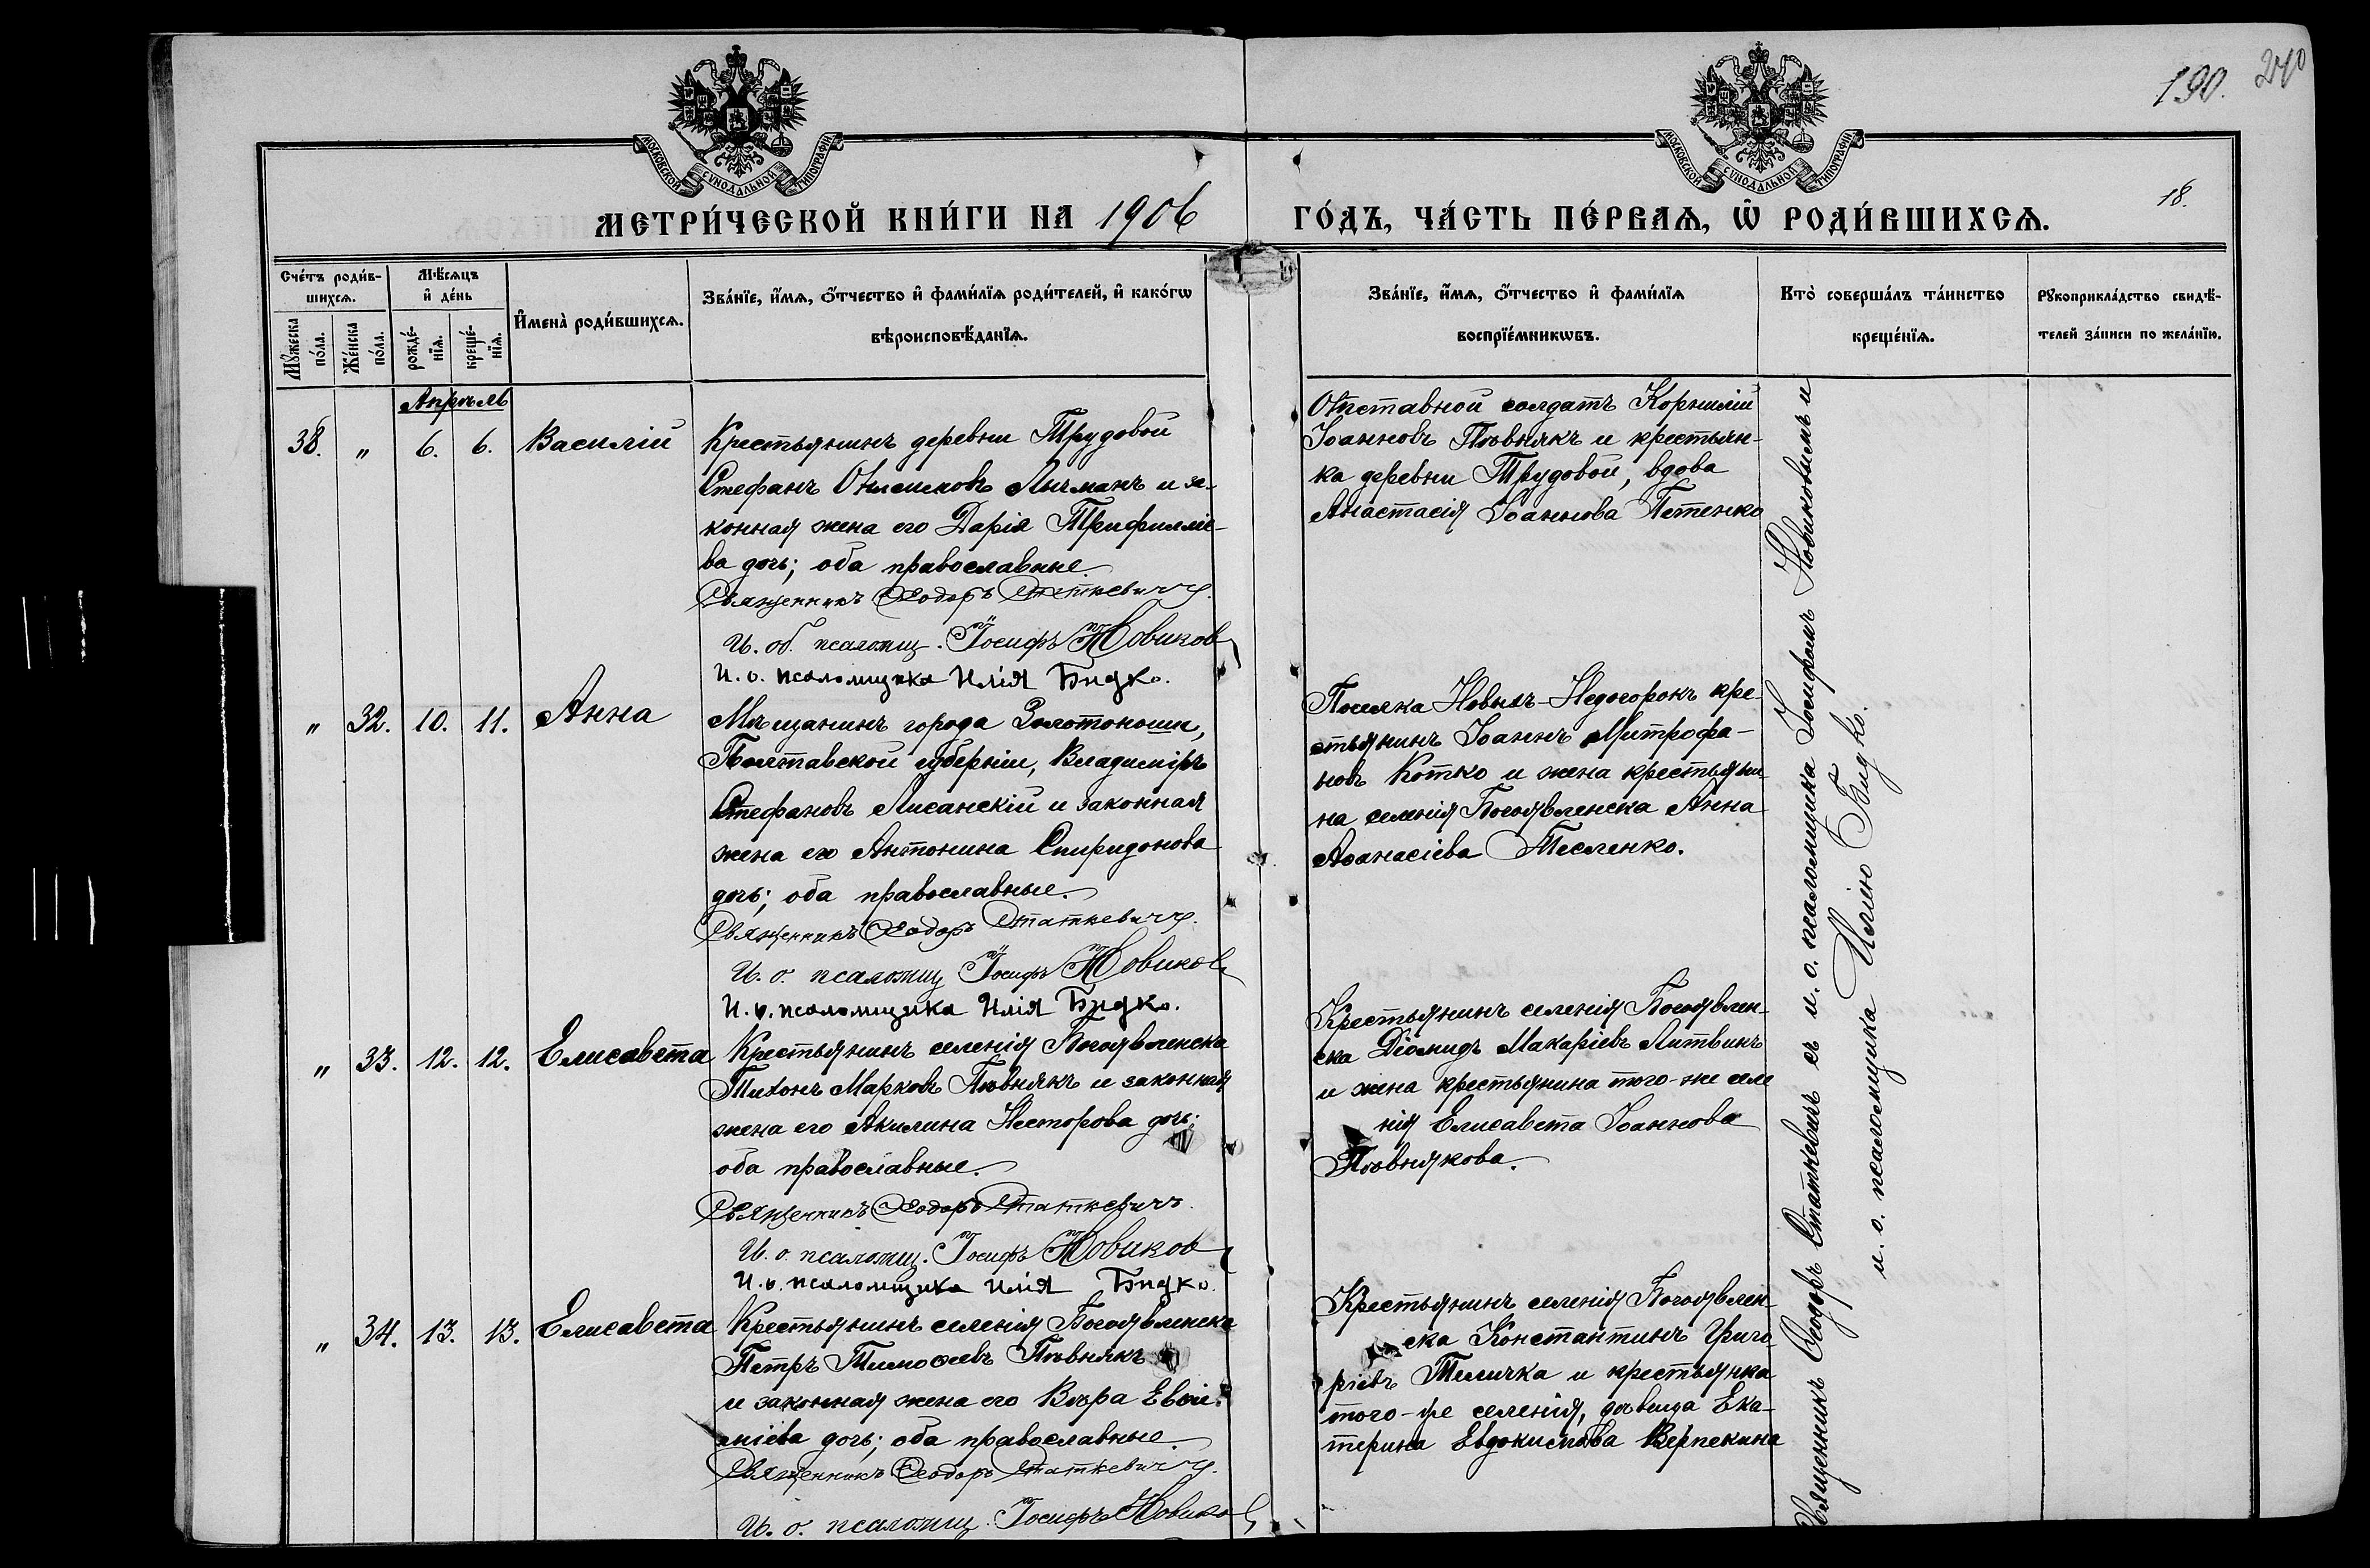 190. 240
МОСКОВСКОЙ СѴНОДАЛЬНОЙ ТИПОГРАФИИ
МОСКОВСКОЙ СѴНОДАЛЬНОЙ ТИПОГРАФИИ
18.
МЕТРИ́ЧЕСКОЙ КНИ́ГИ НА 1906 ГО́ДЪ, ЧА́СТЬ ПЕ́РВАѦ, Ѡ РОДИ́ВШИХСѦ.
Сче́тъ роди́в-
шихсѧ.
Мꙋ́жеска по́ла.
Же́нска по́ла.
Мѣ́сѧцъ
и҆ де́нь
рожде́-
нїѧ.
креще́-
нїѧ.
И҆мена̀ роди́вшихсѧ.
Зва́нїе, и҆́мѧ, ѻ҆́тчество и҆ фами́лїѧ роди́телей, и҆ како́гѡ
вѣроисповѣ́данїѧ.
Зва́нїе, и҆́мѧ, ѻ҆́тчество и҆ фами́лїѧ
воспрїе́мникѡвъ.
Кто̀ соверша́лъ та́инство
креще́нїѧ.
Рꙋкоприкла́дство свидѣ́-
телей за́писи по жела́нїю.
Апрѣль
38. " 6. 6. Василій
Крестьянинъ деревни Трудовой
Стефанъ Онисимовъ Лычманъ и за-
конная жена его Дарія Трифилліе-
ва дочь; оба православные
Священникъ Ѳеодоръ Статкевичъ.
И. об. псаломщ. Іосифъ Новиков
И. о. псаломщика Илія Бидко.
Отставной солдатъ Корнилій
Іоанновъ Пѣвнякъ и крестьян-
ка деревни Трудовой, вдова
Анастасія Іоаннова Петенко
" 32. 10. 11. Анна
Мѣщанинъ города Золотоноши,
Полтавской губерніи, Владиміръ
Стефановъ Лисанскій и законная
жена его Антонина Спиридонова
дочь; оба православные.
Священникъ Ѳеодоръ Статкевичъ.
И. о. псаломщ Іосифъ Новиков
И. о. псаломщика Илія Бидко.
Поселка Новыхъ-Недогорокъ кре-
стьянинъ Іоаннъ Митрофа-
новъ Котко и жена крестьяни-
на селенія Богоявленска Анна
Аѳанасіева Тесленко.
" 33. 12. 12. Елисавета
Крестьянинъ селенія Богоявленска
Тихонъ Марковъ Пѣвнякъ и законная
жена его Акилина Несторова дочь;
оба православные.
Священникъ Ѳеодоръ Статкевичъ.
И. о. псаломщ. Іосифъ Новиков
И. о. псаломщика Илія Бидко.
Крестьянинъ селенія Богоявлен-
ска Діомидъ Макаріевъ Литвинъ
и жена крестьянина того-же селе
нія Елисавета Іоаннова
Пѣвнякова.
" 34. 13. 13. Елисавета
Крестьянинъ селенія Богоявленска
Петръ Тимоѳеевъ Пѣвнякъ
и законная жена его Вѣра Евѳи-
міева дочь; оба православные.
Священникъ Ѳеодоръ Статкевичъ.
И. о. псаломщ. Іосифъ Новиков
Крестьянинъ селенія Богоявлен-
ска Константинъ Григо-
ріевъ Теличка и крестьянка
того-же селенія, дѣвица Ека-
терина Евдокимова Верпекина
Священникъ Ѳеодоръ Статкевичъ съ и. о. псаломщика Іосифомъ Новиковымъ и
и. о. псаломщика Иліею Бидко.